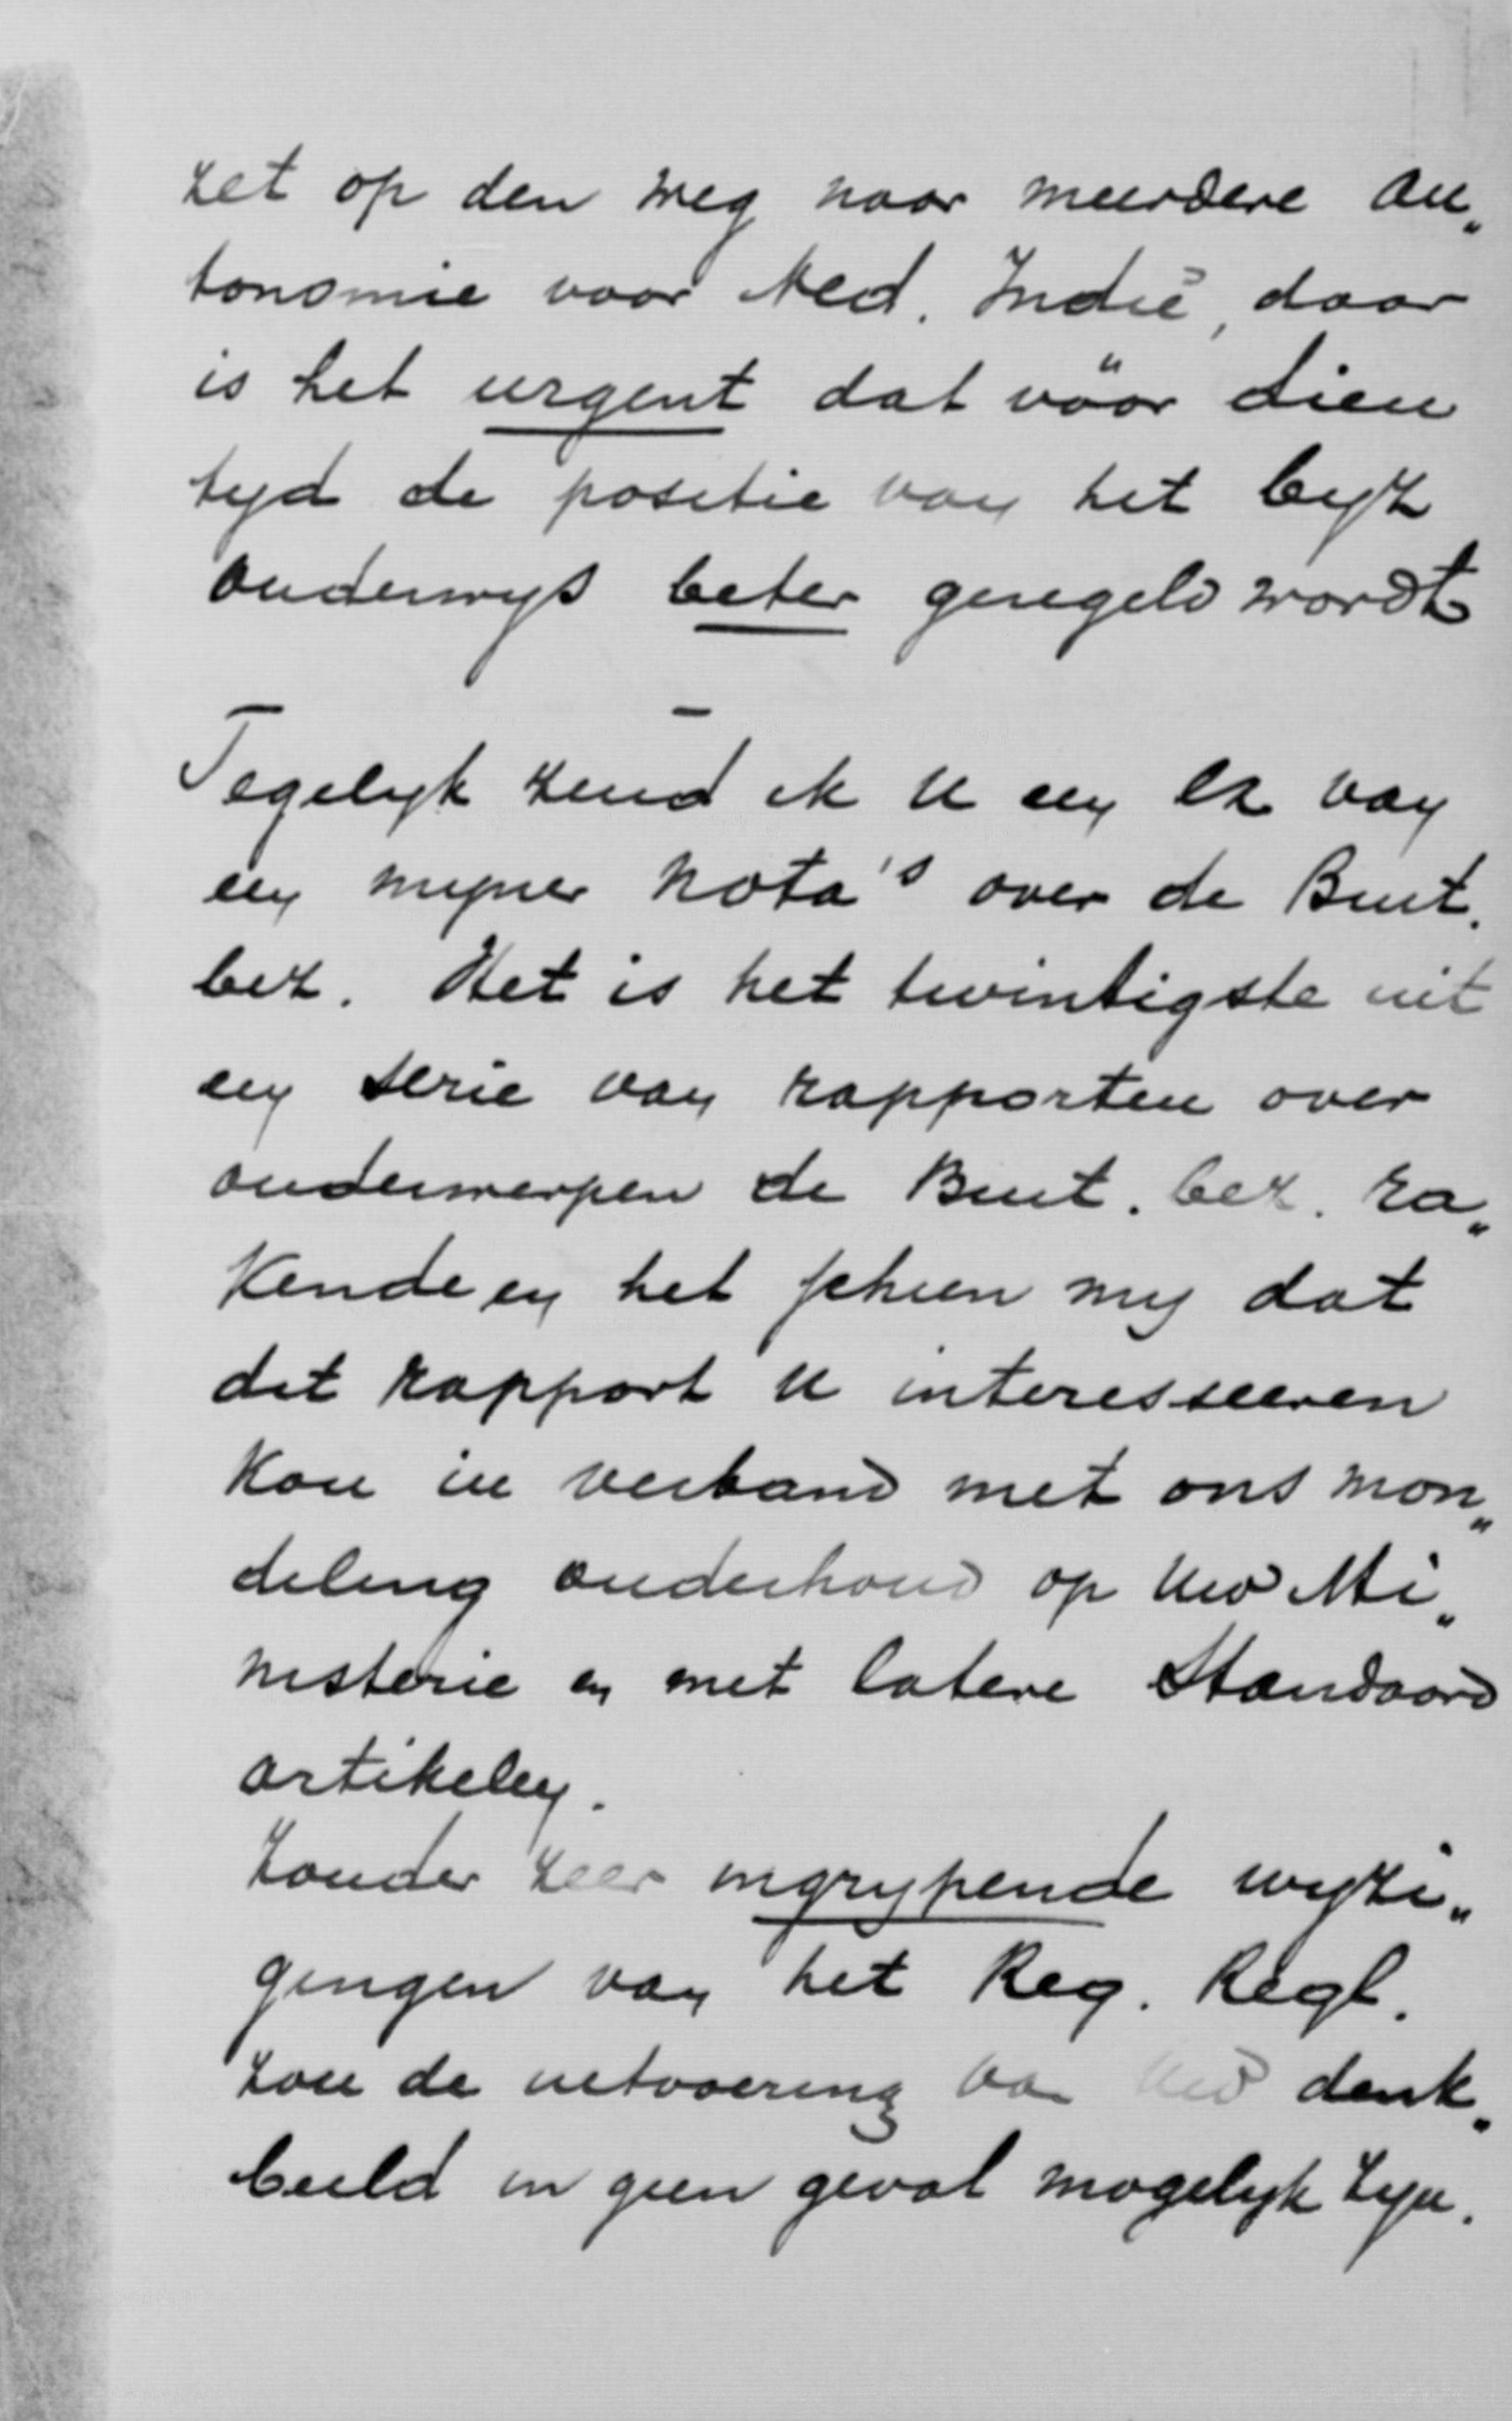 zet op den weg naar meerdere au„
tonomie voor Ned. Indië, daar
is het urgent dat vóór dien
tyd de positie van het byz
onderwys beter geregeld wordt
—
Tegelyk zend ik U een ex van
een myner nota's over de Buit.
bez. Het is het twintigste uit
een serie van rapporten over
onderwerpen de Buit. bez. ra„
kende en het scheen my dat
dit rapport U interesseeren
kon in verband met ons mon„
deling onderhoud op Uw Mi„
nisterie en met latere Standaard
artikelen.
Zonder zeer ingrypende wyzi„
gingen van het Reg. Regl.
zou de uitvoering van Uw denk„
beeld in geen geval mogelyk zyn.